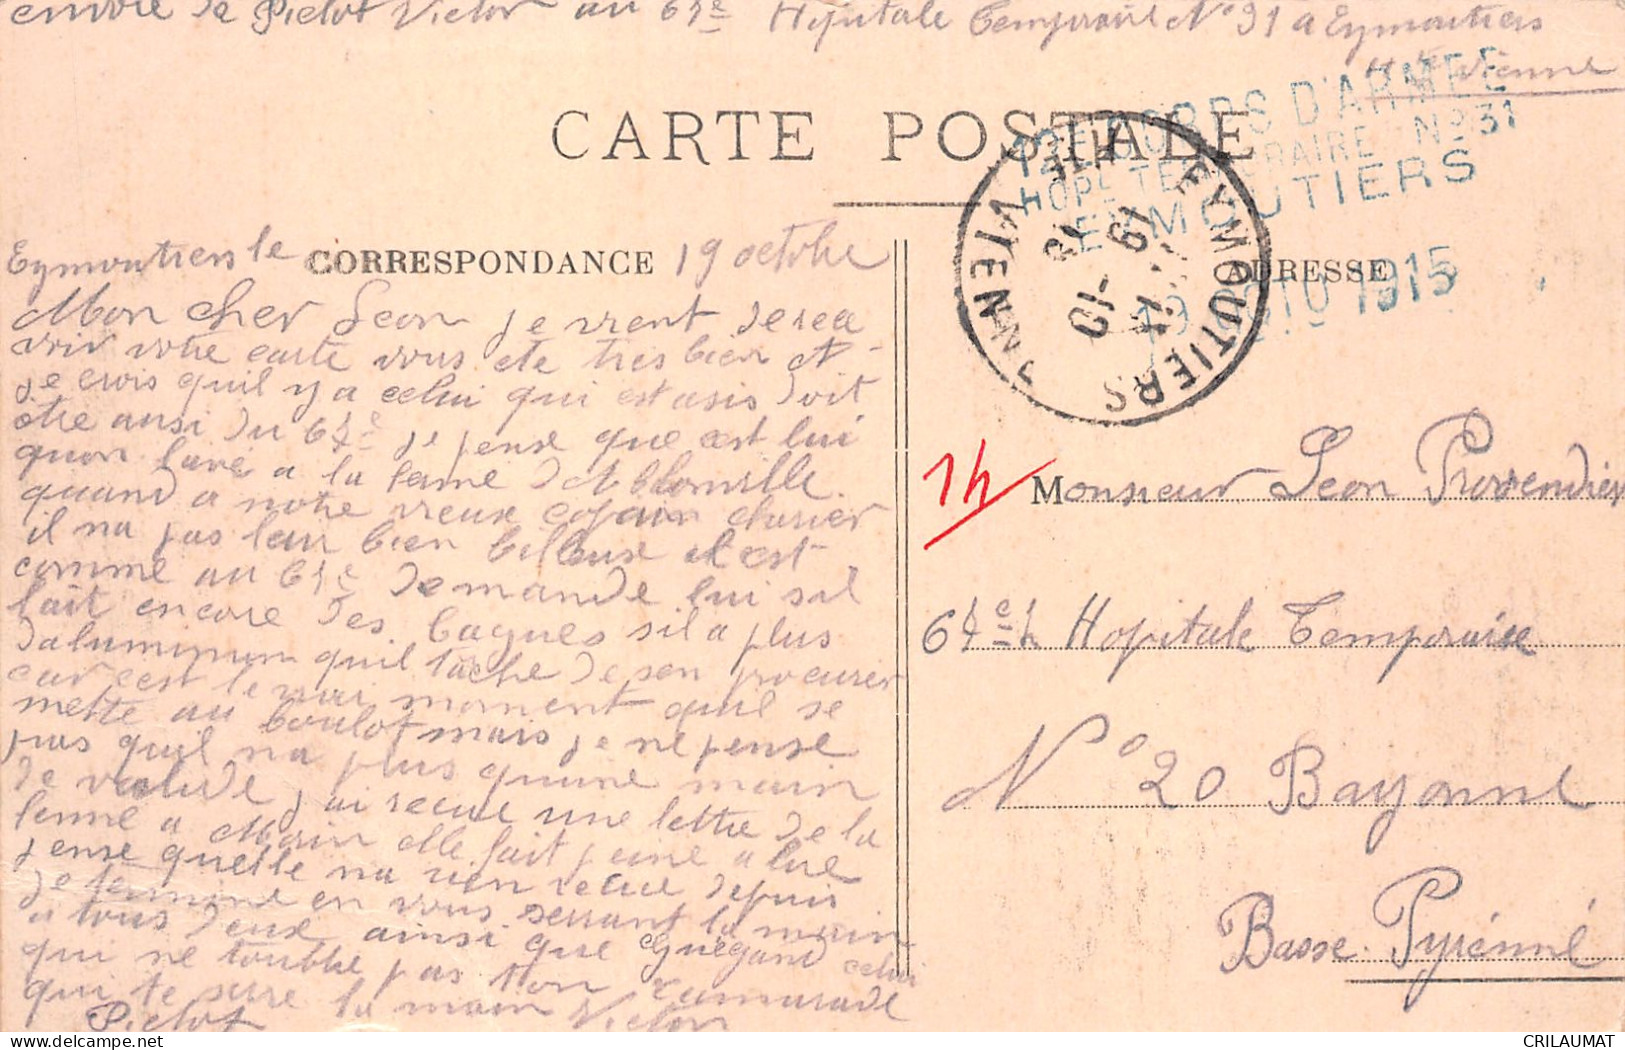 envoie de Pictot Victor au 61e Hopitale Temporaire No 31 a Eymoutiers
Hte Vienne
12E CORPS D'ARMEE
HOPL TEMPORAIRE No 31
EYMOUTIERS
19 OCTO 1915
CARTE POSTALE
EYMOUTIERS
HTE VIENNE
19 -10
15
CORRESPONDANCE
ADRESSE
Eymoutiers le 19 octobre
Mon cher Leon je vient de rece
voir votre carte vous ete tres bien et
je crois quil y a celui qui est asis doit
etre ausi du 6 je pense que c'est lui
quon lavé a la
quand a notre vieux copain
il na pas lair bien bilieuse il est
comme au 61e demande lui sil
fait encore des bagues sil a plus
daluminium quil tache de sen procurer
car cest le vrai moment quil se
mette au boulot mais je ne pense
pas quil na plus quune main
de valide j'ai recue une lettre de la
a elle fait peine a lire
pense quelle na rien recue depuis
je termine en vous serrant la main
a tous deux ainsi que Guegand celui
qui ne toublie pas ton camarade
qui te serre la main Victor
Pictot
14
Monsieur Leon Provendier
Hopitale Temporaire
No 20 Bayonne
Basse Pyrénné
CRILAUMAT